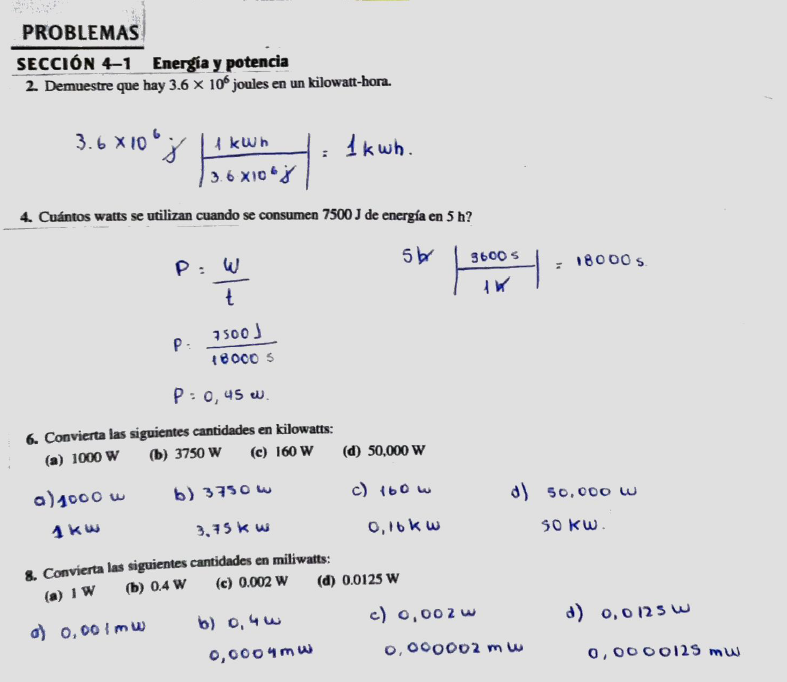 PROBLEMAS
SECCIÓN 4–1 Energía y potencia
2. Demuestre que hay 3.6 × 10⁶ joules en un kilowatt-hora.
3.6 × 10⁶ j | 1 kwh / 3.6 × 10⁶ j | = 1 kwh.
4. Cuántos watts se utilizan cuando se consumen 7500 J de energía en 5 h?
P = W / t
5 h | 3600 s / 1 h | = 18000 s
P = 7500 J / 18000 s
P = 0,45 w.
6. Convierta las siguientes cantidades en kilowatts:
(a) 1000 W (b) 3750 W (c) 160 W (d) 50,000 W
a) 1000 w b) 3750 w c) 160 w d) 50,000 w
1 kw 3.75 k w 0,16 k w 50 kw.
8. Convierta las siguientes cantidades en miliwatts:
(a) 1 W (b) 0.4 W (c) 0.002 W (d) 0.0125 W
a) 0,001 mw b) 0,4 w c) 0,002 w d) 0,0125 w
0,0004 mw 0,000002 mw 0,0000125 mw